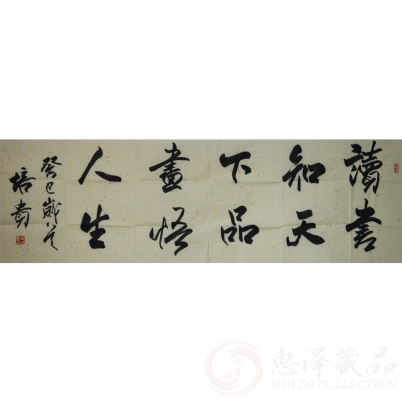 讀書
知天
下品
畫悟
人生
癸巳歲
培壽
惠泽藏品
HUIZE COLLECTION